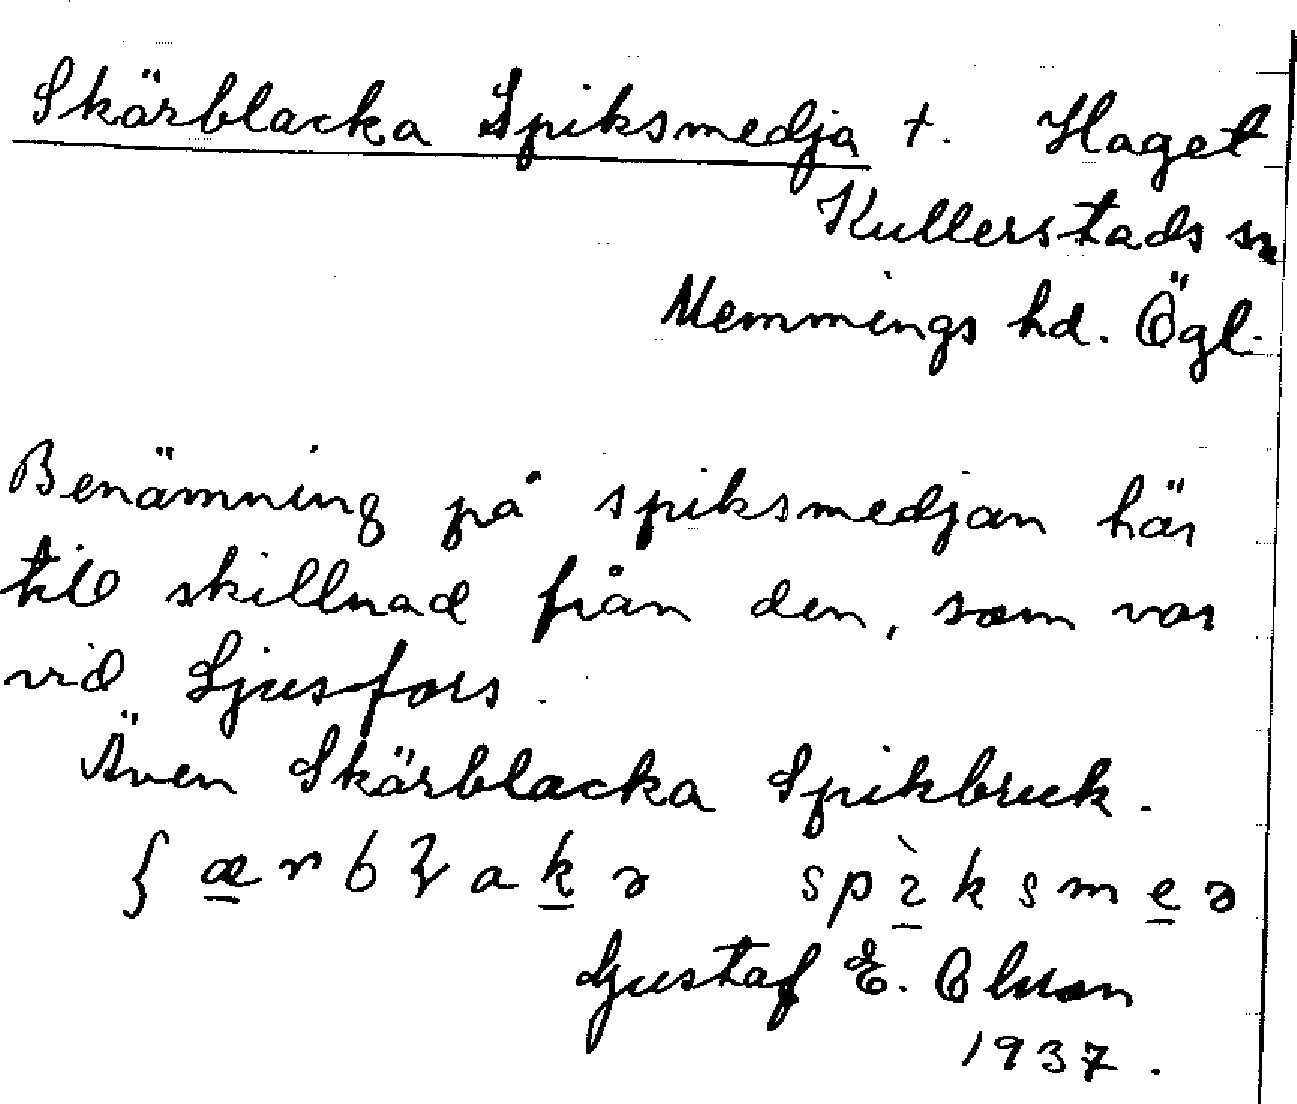 Skärblacka Spiksmedja +. Haget
Kullerstads sn
Memmings hd. Ögl.
Benämning på spiksmedjan här
till skillnad från den, som var
vid Ljusfors.
Även Skärblacka Spikbruk.
Gustaf E. Olsson
1937.